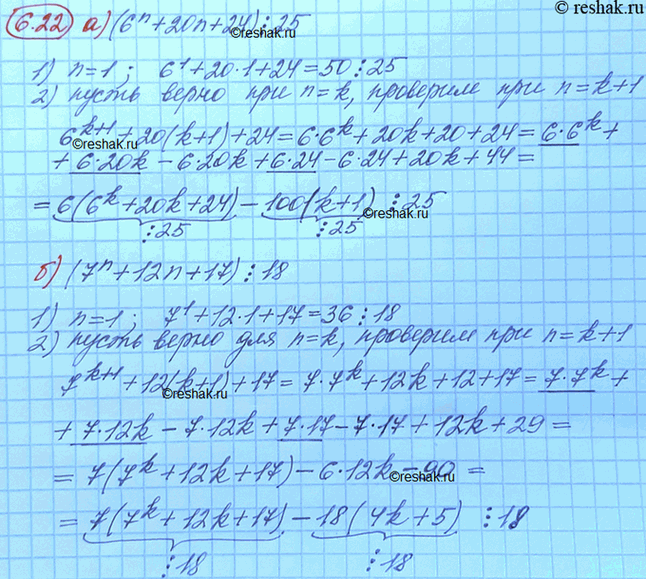 © reshak.ru
6.22 а) (6ⁿ+20n+24)⋮25
©reshak.ru
1) n=1; 6¹+20·1+24=50⋮25
2) пусть верно при n=k, проверим при n=k+1
6ᵏ⁺¹+20(k+1)+24=6·6ᵏ+20k+20+24=6·6ᵏ+
©reshak.ru
+6·20k-6·20k+6·24-6·24+20k+44=
=6(6ᵏ+20k+24)-100(k+1)⋮25
©reshak.ru
⋮25 ⋮25
б) (7ⁿ+12n+17)⋮18
1) n=1; 7¹+12·1+17=36⋮18
2) пусть верно для n=k, проверим при n=k+1
7ᵏ⁺¹+12(k+1)+17=7·7ᵏ+12k+12+17=7·7ᵏ+
©reshak.ru
+7·12k-7·12k+7·17-7·17+12k+29=
=7(7ᵏ+12k+17)-6·12k-90=
©reshak.ru
=7(7ᵏ+12k+17)-18(4k+5) ⋮18
⋮18 ⋮18